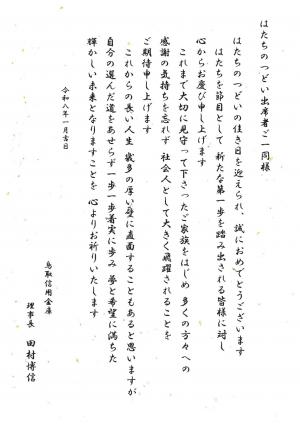 はたちのつどい出席者ご一同様
はたちのつどいの佳き日を迎えられ、誠におめでとうございます
はたちを節目として 新たな第一歩を踏み出される皆様に対し
心からお慶び申し上げます
これまで大切に見守って下さったご家族をはじめ 多くの方々への
感謝の気持ちを忘れず 社会人として大きく飛躍されることを
ご期待申し上げます
これからの長い人生 幾多の厚い壁に直面することもあると思いますが
自分の選んだ道をあせらず一歩一歩着実に歩み 夢と希望に満ちた
輝かしい未来となりますことを 心よりお祈りいたします
令和八年一月吉日
鳥取信用金庫
理事長 田村博信